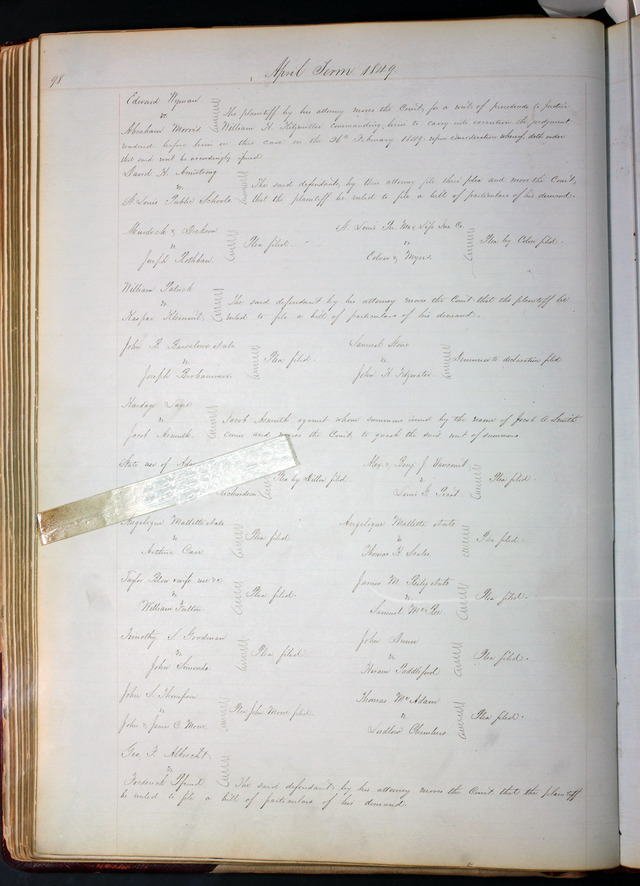 98
April Term 1849
Edward Wyman
vs
Abraham Morris
The plaintiff by his attorney moves the Court, for a writ of procedendo to Justice
William H. commanding him to carry into execution the judgment
rendered before him in this case on the 26th February 1849. upon consideration whereof, doth order
that said writ be accordingly issued
David H. Armstrong
vs
St Louis Public Schools
The said defendants, by their attorney file their plea and move the Court,
that the plaintiff be ruled to file a bill of particulars of his demand.
Murdoch & Dickson
vs
Joseph
Plea filed.
St. Louis Life Ins Co.
vs
& Myers
Plea by filed.
William Patrick
vs
Kaspar
The said defendant by his attorney moves the Court that the plaintiff be
ruled to file a bill of particulars of his demand.
John B.
vs
Joseph
Plea filed.
Samuel
vs
John H.
Demurrer to declaration filed
vs
Jacob
Jacob against whom summons issued by the name of Jacob A. Smith
comes and moves the Court, to quash the said writ of summons
State use of
Richardson
Plea by Miller filed.
Alex. & Benj. J.
vs
Louis G. Picot
Plea filed.
Angelique Mallette
vs
Arthur Carr
Plea filed.
Angelique Mallette
vs
Thomas H.
Plea filed.
Taylor Blow & wife use &c
vs
William Fulton
Plea filed.
James M.
vs
Samuel
Plea filed.
Timothy S. Goodman
vs
John Simonds
Plea filed
John
vs
Hiram Paddleford
Plea filed.
John S. Thompson
vs
John & James C. Moore
Plea John Moore filed.
Thomas McAdam
vs
Ludlow Chambers
Plea filed.
Geo. F. Albrecht
vs
Frederick
The said defendant, by his attorney moves the Court that the plaintiff
be ruled to file a bill of particulars of his demand